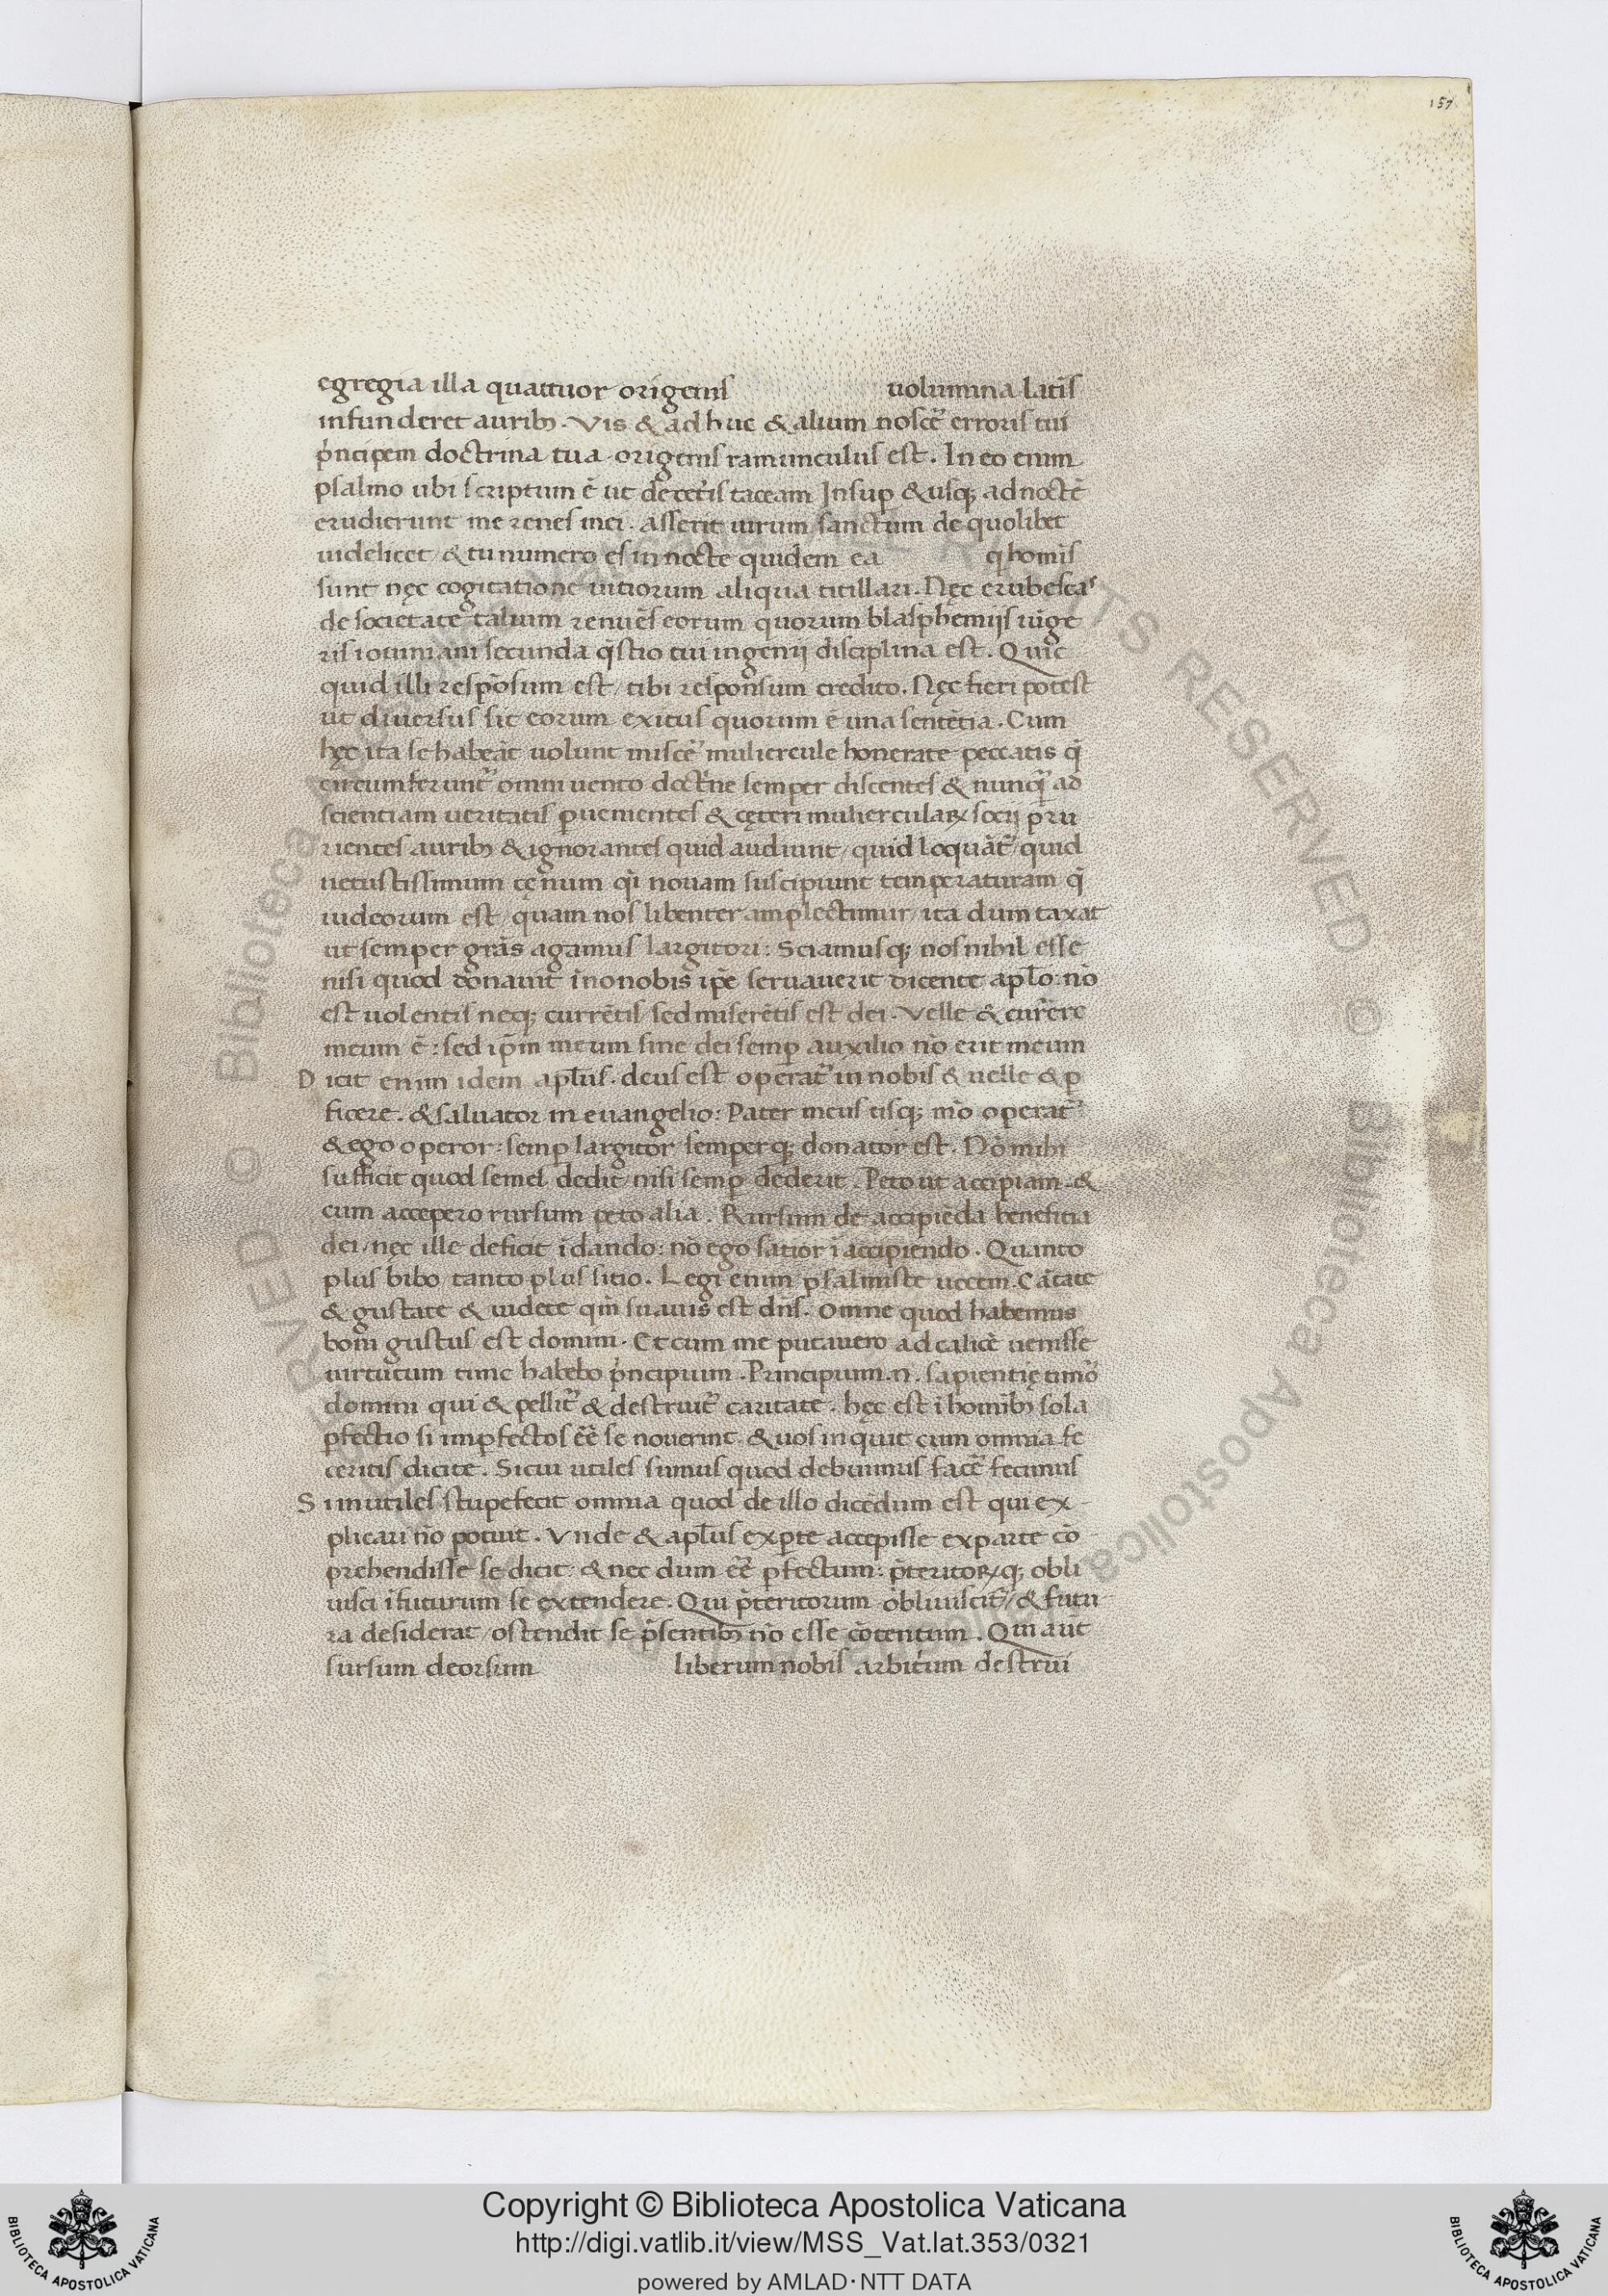 157
egregia illa quattuor origenis uolumina latis
infunderet aurib₉. Vis & ad huc & alium noscē erroris tui
p̍ncipem doctrina tua origenis ramunculus est. In eo enim
psalmo ubi scriptum ē ut de cet̄is taceam Insup̱ & usq; ad noctē
erudierunt me renes mei. asserit uirum sanctum de quolibet
uidelicet & tu numero es in nocte quidem ea q̱ homīs
sunt nęc cogitatione uitiorum aliqua titillari. Nęc erubescas
de societate talium renuēs eorum quorum blasphemijs iuge
ris iouiniani secunda q̄stio tui ingenij disciplina est. Quic
quid illi respōsum est / tibi responsum credito. Nęc fieri potest
ut diuersus sit eorum exitus quorum ē una sentētia. Cum
hęc ita se habeāt uolunt miscē muliercule honerate peccatis q̄
circumferunt᷑ omni uento doct̍ne semper discentes & nunq̄ ad
scientiam ueritatis ꝑuenientes & cęteri muliercularꝝ socij pru
rientes aurib₉ & ignorantes quid audiunt / quid loquāt᷑ / quid
uetustissimum cęnum q̍ nouam suscipiunt temperaturam q̄
iudeorum est / quam nos libenter amplectimur / ita dum taxat
ut semper grās agamus largitori: Sciamusq; nos nihil esse
nisi quod donauit ı nonobis ip̄e seruauerit dicente apl̄o: nō
est uolentis neq; currētis / sed miserētis est dei. Velle & currere
meum ē: sed ip̄m meum sine dei semꝑ auxilio nō erit meum
Dicit enim idem apl̄us. deus est operat᷑ in nobis & uelle & ꝑ
ficere. & saluator in euangelio: Pater meus usq; mō operat᷑
& ego operor: semꝑ largitor semperq; donator est. Nō mihi
sufficit quod semel dedit / nisi semꝑ dederit. Peto ut accipiam &
cum accepero rursum peto alia. Rursum de accipiēda beneficia
dei / nec ille deficit ī dando: nō ego satior ī accipiendo. Quanto
plus bibo / tanto plus sitio. Legi enim psalmiste uocem. Cātate
& gustate & uidete qm̄ suauis est dn̄s. omne quod habemus
bom̄ gustus est domini. Et cum me putauero ad calicē uenisse
uirtutum tunc habebo p̍ncipium. Principium .n. sapientię timō
domini qui & pellit᷑ & destruit᷑ caritate. hęc est ī homīb₉ sola
ꝑfectio si imꝑfectos ēē se nouerint. & uos inquit cum omnia fe
ceritis dicite. Sicui utiles sumus quod debuimus facē fecimus
Si inutiles stupefecit omnia quod de illo dicēdum est qui ex
plicari nō potuit. Vnde & apl̄us ex ꝑte accepisse exparte cō
prehendisse se dicit: & nec dum ēē ꝑfectum: p̄teritorꝝq; obli
uisci ī futurum se extendere. Qui p̄teritorum obliuiscit᷑ / & futu
ra desiderat / ostendit se p̄sentib₉ nō esse cōtentum. Qui aūt
sursum deorsum liberum nobis arbit̍um destrui
Copyright © Biblioteca Apostolica Vaticana
http://digi.vatlib.it/view/MSS_Vat.lat.353/0321
powered by AMLAD·NTT DATA